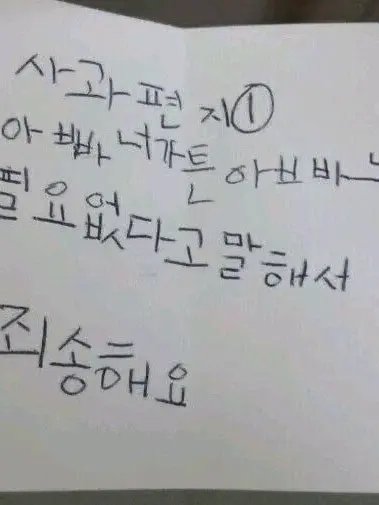 사과 편지①
아빠 너가튼 아빠
필요 없다고 말해서
죄송해요